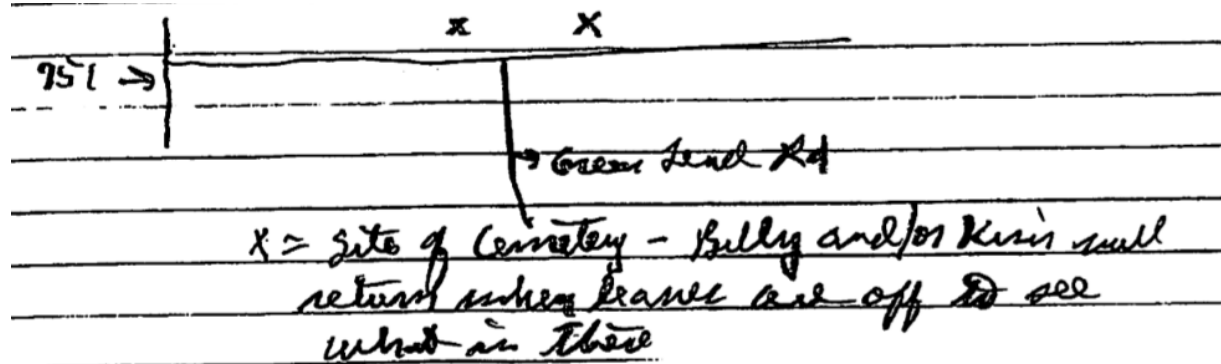 x X
751 →
→ Green Level Rd
X = Site of Cemetery - Billy and/or will
return when leaves are off to see
what is there